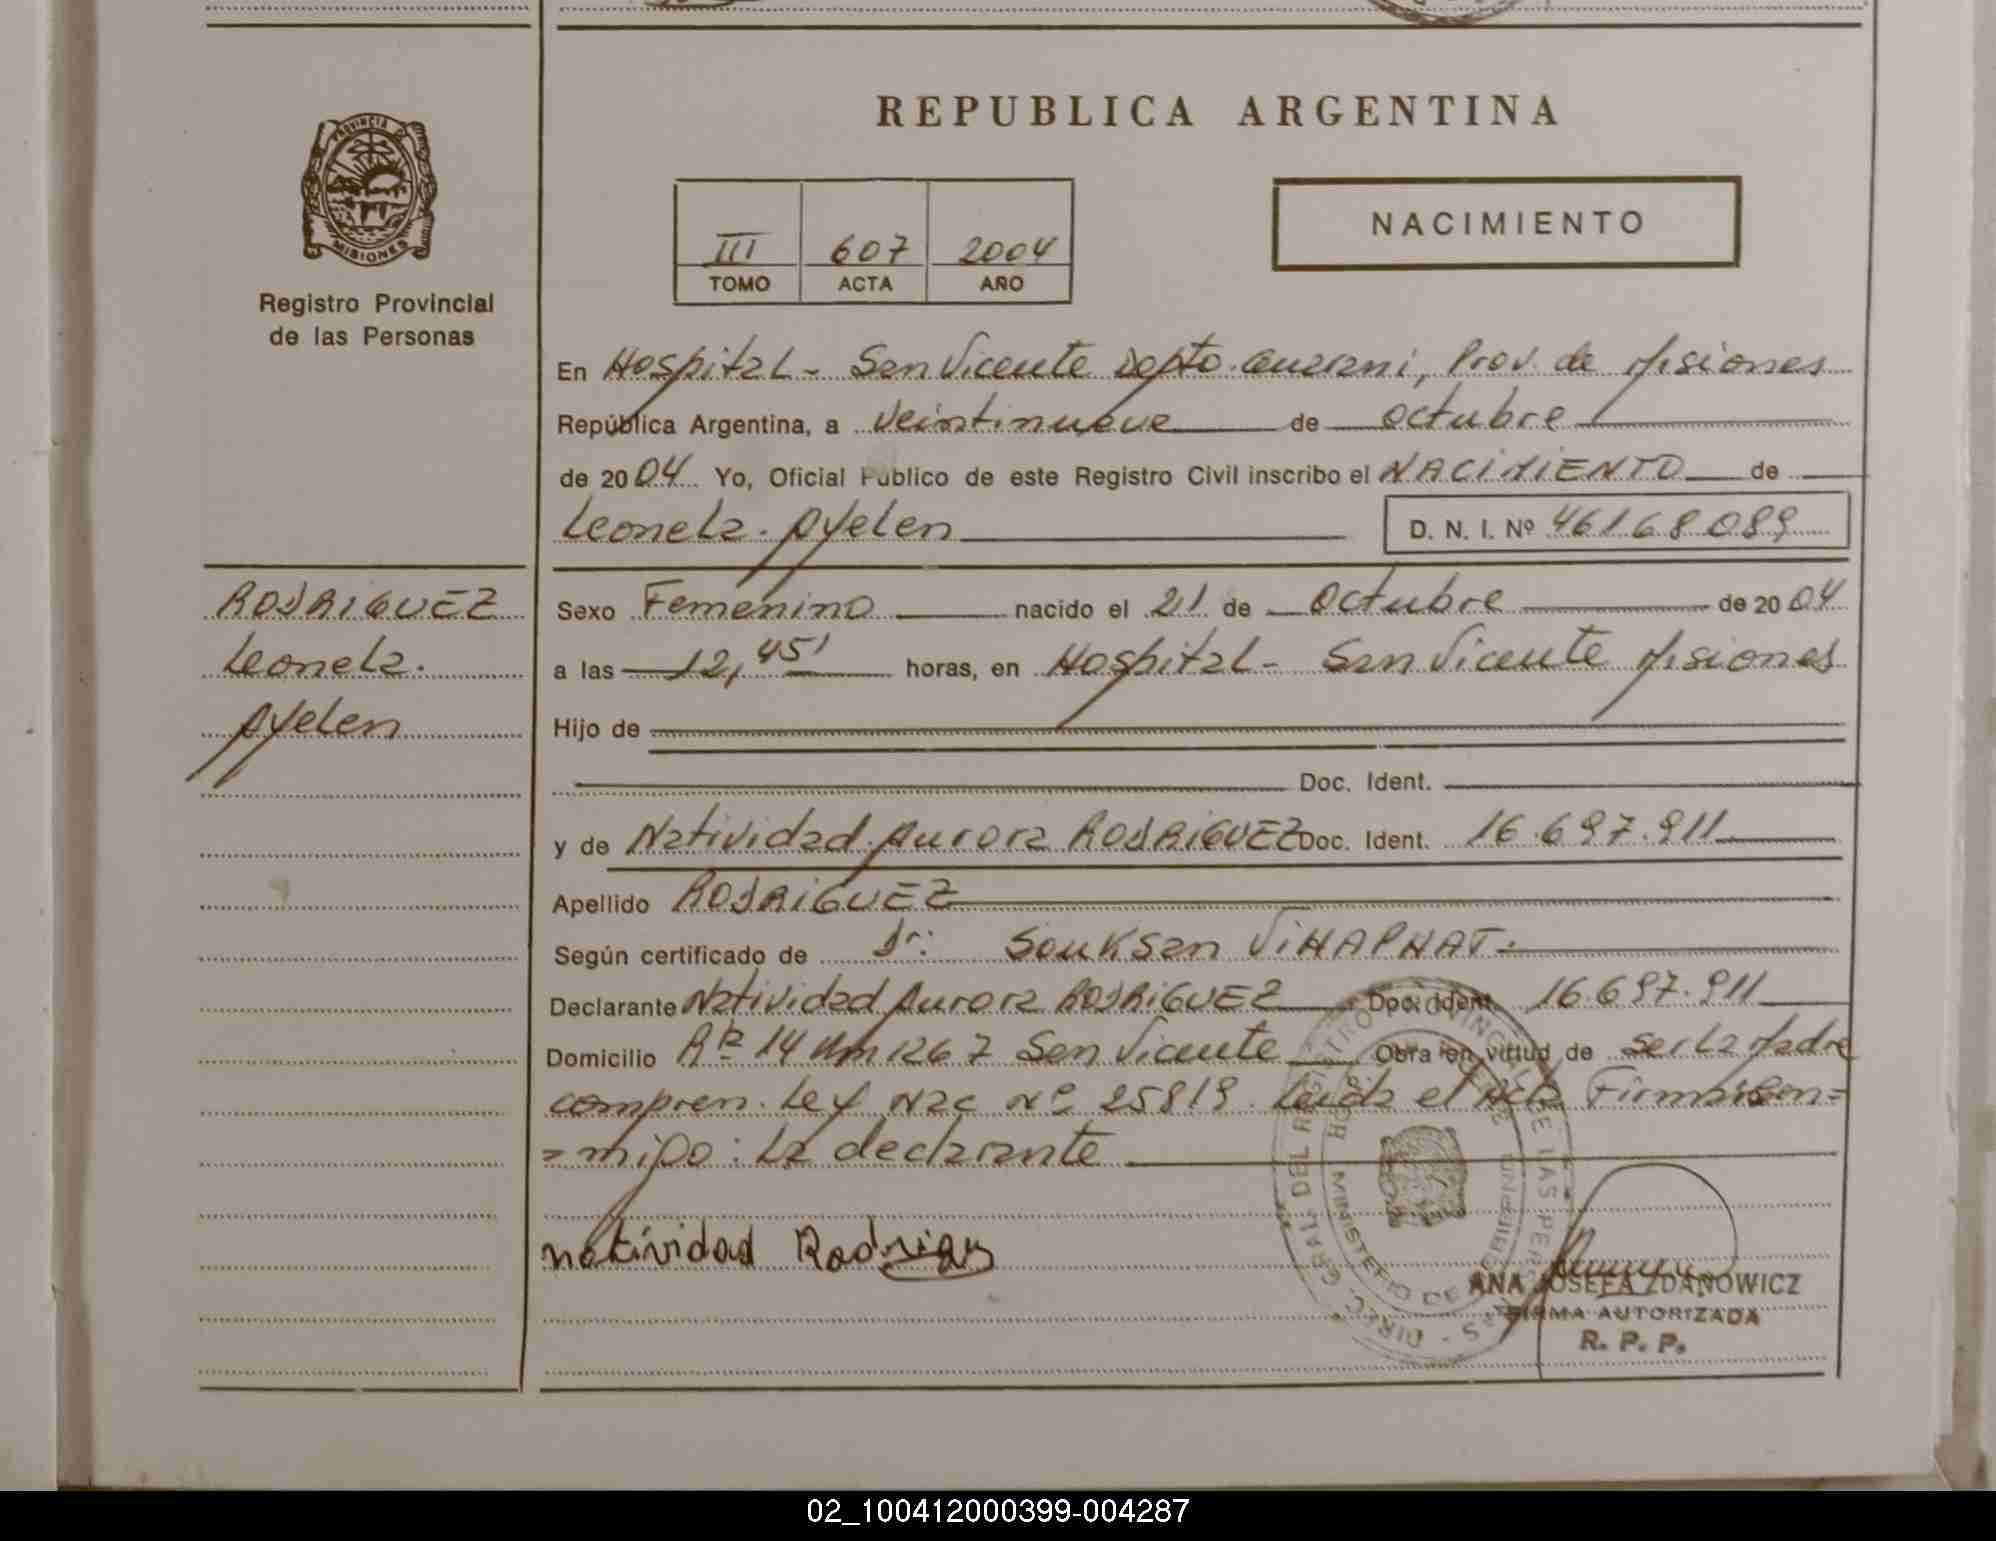 REPUBLICA ARGENTINA
PROVINCIA DE
MISIONES
Registro Provincial
de las Personas
III 607 2004
TOMO ACTA AÑO
NACIMIENTO
En Hospital - San Vicente Depto. Guarani, Prov. de Misiones
República Argentina, a veintinueve de octubre
de 2004 Yo, Oficial Público de este Registro Civil inscribo el NACIMIENTO de
Leonela. Ayelen D. N. I. Nº 46168089
RODRIGUEZ
Leonela.
Ayelen
Sexo Femenino nacido el 21 de Octubre de 2004
a las 12,45' horas, en Hospital - San Vicente Misiones
Hijo de
Doc. Ident.
y de Natividad Aurora RODRIGUEZ Doc. Ident. 16.697.911
Apellido RODRIGUEZ
Según certificado de Dr: Souksan VIHAPHAT.
Declarante Natividad Aurora RODRIGUEZ Doc. Ident. 16.697.911
Domicilio Rta 14 Km 1267 San Vicente Obra en virtud de ser la Madre
compren. Ley Nac Nº 25819. Leida el Acta Firman con=
=migo: La declarante
natividad Rodriguz
ANA JOSEFA ZDANOWICZ
FIRMA AUTORIZADA
R. P. P.
02_100412000399-004287